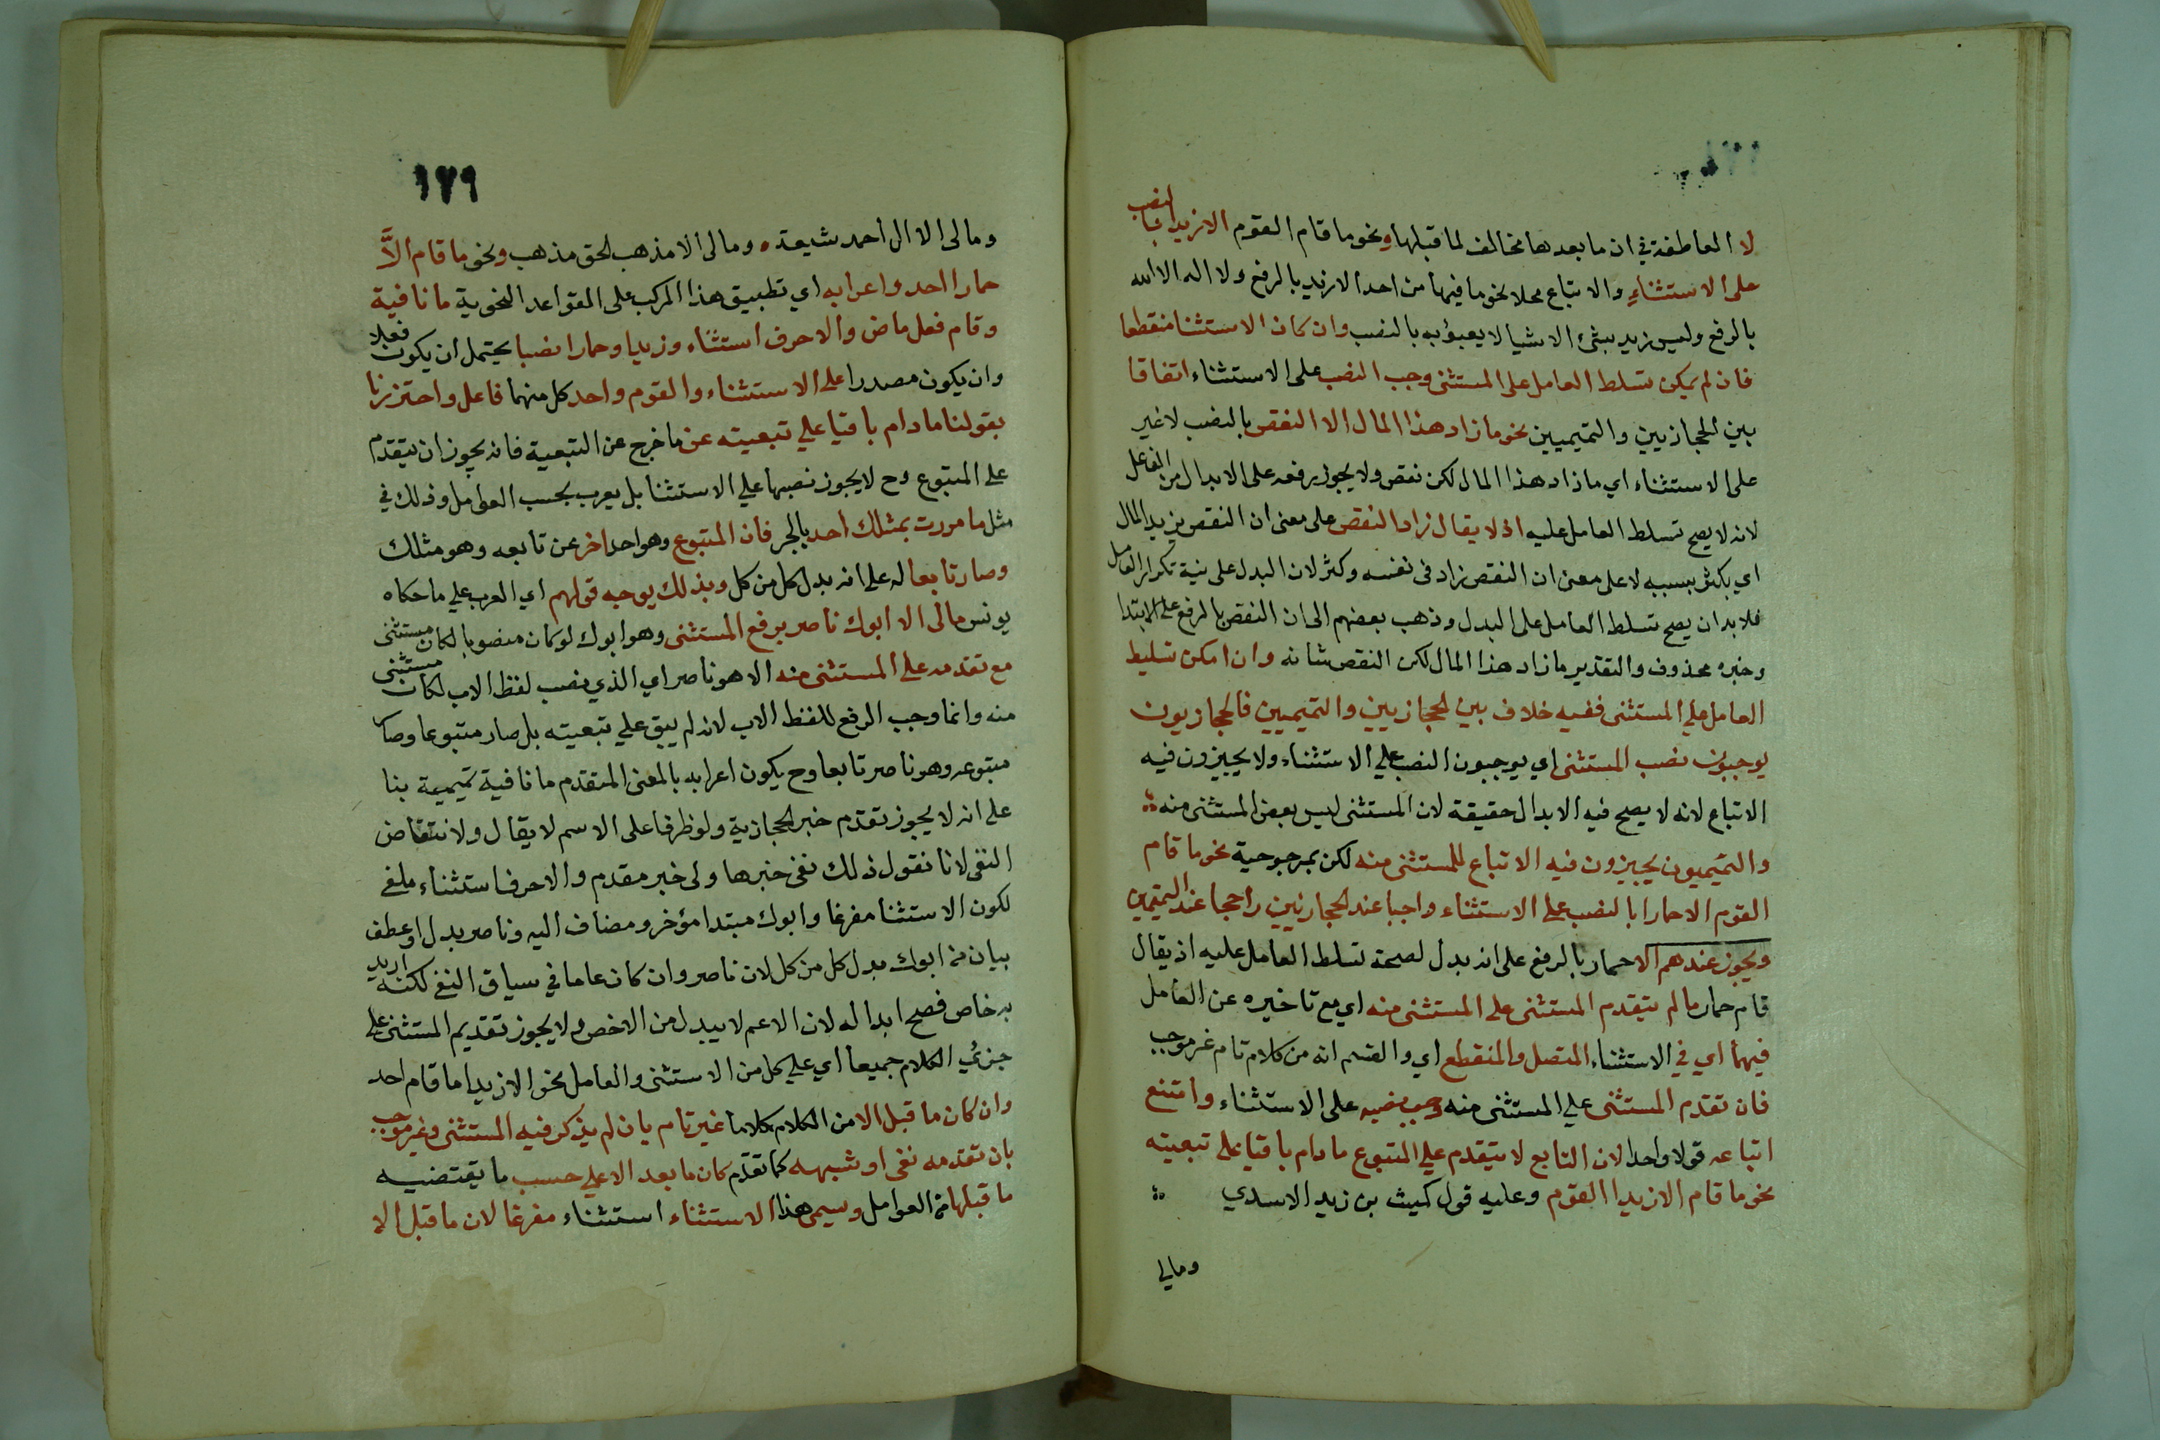 لا العاطفة في ان ما بعدها مخالف لما قبلها ونحو ما قام القوم الا زيدا بالنصب
على الاستثناء والاتباع محلا نحو ما فيها من احد الا زيد بالرفع ولا اله الا الله
بالرفع وليس زيد بشئ الا شيا لا يعبؤ به بالنصب وان كان الاستثنا منقطعا
فان لم يمكن تسلط العامل على المستثنى وجب النصب على الاستثناء اتفاقا
بين الحجازيين والتميميين نحو ما زاد هذا المال الا النقص بالنصب لا غير
على الاستثناء اي ما زاد هذا المال لكن نقص ولا يجوز رفعه على الابدال من الفاعل
لانه لا يصح تسلط العامل عليه اذ لا يقال زاد النقص على معنى ان النقص يزيد المال
اي يكثر بسببه لا على معنى ان النقص زاد في نفسه وكثر لان البدل على نية تكرار العامل
فلا بد ان يصح تسلط العامل على البدل وذهب بعضهم الى ان النقص بالرفع على الابتدا
وخبره محذوف والتقدير ما زاد هذا المال لكن النقص شانه وان امكن تسليط
العامل على المستثنى ففيه خلاف بين الحجازيين والتميميين فالحجازيون
يوجبون نصب المستثنى اي يوجبون النصب على الاستثناء ولا يجيزون فيه
الاتباع لانه لا يصح فيه الابدال حقيقة لان المستثنى ليس بعض المستثنى منه
والتميميون يجيزون فيه الاتباع للمستثنى منه لكن بمرجوحية نحو ما قام
القوم الا حمارا بالنصب على الاستثناء واجبا عند الحجازيين راجحا عند التميميين
ويجوز عندهم الا حمار بالرفع على انه بدل لصحة تسلط العامل عليه اذ يقال
قام حمار ما لم يتقدم المستثنى على المستثنى منه اي مع تاخيره عن العامل
فيهما اي في الاستثناء المتصل والمنقطع اي والقسم انه من كلام تام غير موجب
فان تقدم المستثنى علي المستثنى منه وجب نصبه على الاستثناء وامتنع
اتباعه قولا واحدا لان التابع لا يتقدم علي المتبوع ما دام باقيا على تبعيته
نحو ما قام الا زيدا القوم وعليه قول كميث بن زيد الاسدي
ومالي
١٧٩
ومالى الا ال أحمد شيعة ٥ ومالى الا مذهب الحق مذهب ونحو ما قام الاَّ
حمارا احد واعرابه اي تطبيق هذا المركب على القواعد النحوية ما نافية
وقام فعل ماض والا حرف استثناء وزيدا وحمارا نصبا يحتمل ان يكون فعلا
وان يكون مصدرا على الاستثناء والقوم واحد كل منهما فاعل واحترزنا
بقولنا مادام باقيا علي تبعيته عن ما خرج عن التبعية فانه يجوز ان يتقدم
على المتبوع وح لا يجوز نصبها علي الاستثنا بل يعرب بحسب العوامل وذلك في
مثل ما مررت بمثلك احد بالجر فان المتبوع وهو احد اخر عن تابعه وهو مثلك
وصار تابعا له على انه بدل كل من كل وبذلك يوجه قولهم اي العرب علي ما حكاه
يونس مالى الا ابوك ناصر برفع المستثنى وهو ابوك لو كان منصوبا لكان مستثنى
مع تقدمه على المستثنى منه الا هو ناصر اي الذي نصب لفظ الاب لكان مستثنى
منه وانما وجب الرفع للفظ الاب لانه لم يبق علي تبعيته بل صار متبوعا وصا
متبوعه وهو ناصر تابعا وح يكون اعرابه بالمعنى المتقدم ما نافية تميمية بنا
على انه لا يجوز تقدم خبر الحجازية ولو ظرفا على الاسم لا يقال ولا نتقاض
النفى لانا نقول ذلك نفى خبرها ولى خبر مقدم والا حرف استثناء ملغى
لكون الاستثنا مفرغا وابوك مبتدا مؤخر ومضاف اليه وناصر بدل او عطف
بيان من ابوك بدل كل من كل لان ناصر وان كان عاما في سياق النفي لكنه اريد
به خاص فصح ابداله لان الاعم لا يبدل من الاخص ولا يجوز تقديم المستثنى على
جزئي الكلام جميعا أي علي كل من الاستثنى والعامل نحو الا زيدا ما قام احد
وان كان ما قبل الا من الكلام كلاما غير تام بان لم يذكر فيه المستثنى وغير موجب
بان تقدمه نفى او شبهه كما تقدم كان ما بعد الا علي حسب ما يقتضيه
ما قبلها من العوامل وسيمى هذا الاستثناء استثناء مفرغا لان ما قبل الا